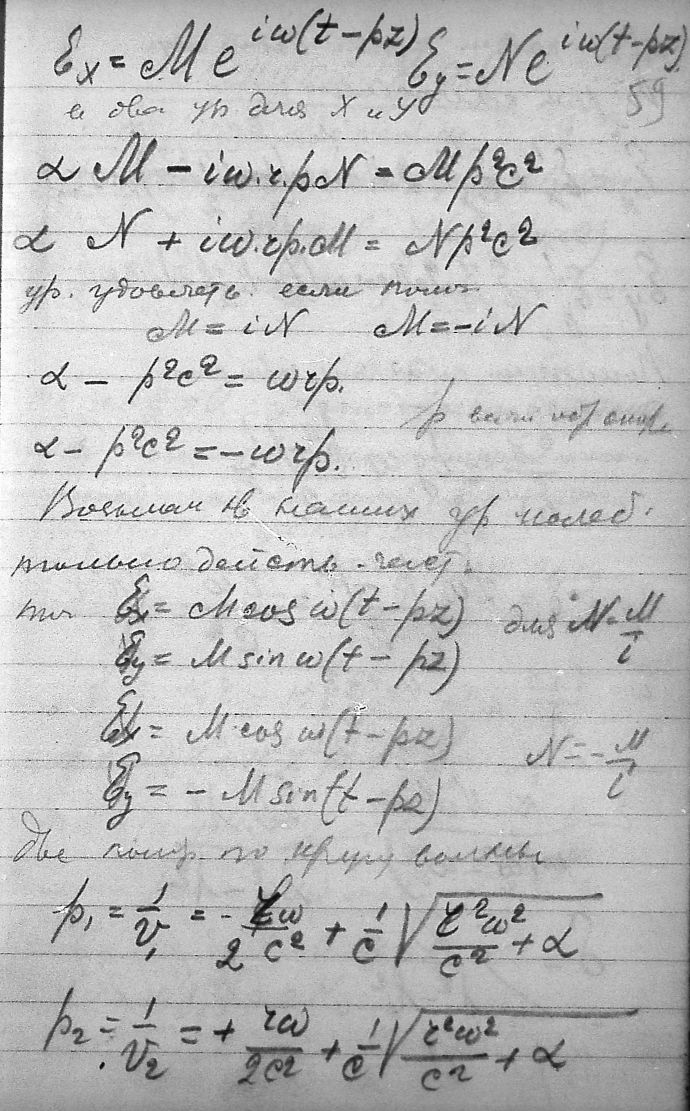 Ɛx = M e^{iω(t−pz)} Ɛy = N e^{iω(t−pz)}
и два ур для X и Y 59
α M − iω.r.pN = M p²c²
α N + iω.rp.M = N p²c²
ур. удовлетв. если полож
M = iN M = −iN
α − p²c² = ωrp.
p
α − p²c² = −ωrp.
Возьмем в наших ур колеб.
только действ. част.
то Ɛx = M cos ω(t − pz) для N = M/i
Ɛy = M sin ω(t − pz)
Ɛx = M cos ω(t − pz) N = −M/i
Ɛy = − M sin(t − pz)
Две поляр. по кругу волны
p₁ = 1/V₁ = − rω/2c² + 1/c √(r²ω²/c² + α)
p₂ = 1/V₂ = + rω/2c² + 1/c √(r²ω²/c² + α)